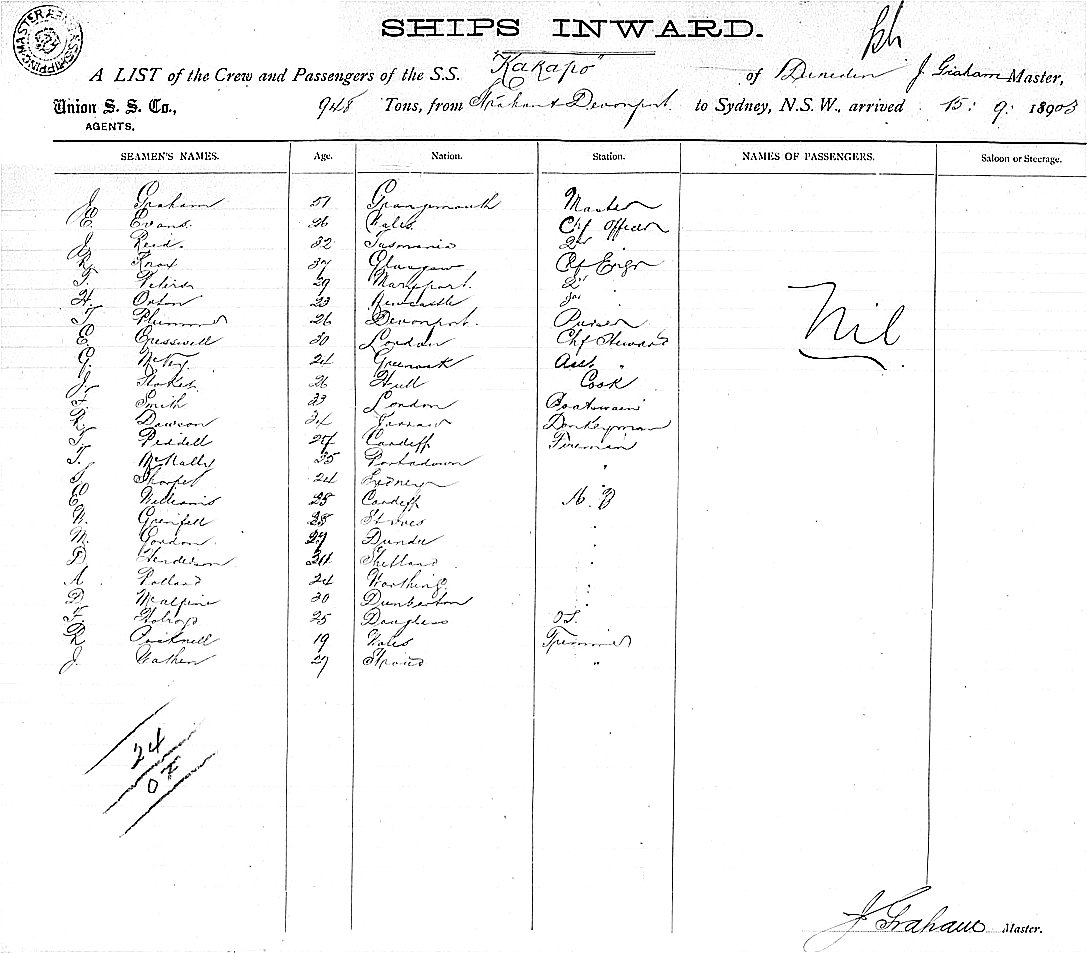 SHIPS INWARD.
A LIST of the Crew and Passengers of the S.S. "Kakapo" of Dunedin J Graham Master,
Union S. S. Co., 948 Tons, from Strahan & Devonport to Sydney, N.S.W., arrived 15: 9: 1903
AGENTS.
SEAMEN'S NAMES. Age. Nation. Station. NAMES OF PASSENGERS. Saloon or Steerage.
J Graham 51 Grangemouth Master
E. Evans 26 Wales Chf Officer
J Reid. 32 Tasmania 2nd "
R Knox 37 Glasgow Chf Engr
T. Peters 29 Maryport. 2nd "
H. Orton 23 Newcastle 3rd "
T Plummer 26 Devonport. Purser
E Cresswell 30 London Chf Steward
G. McKay 24 Greenock Asst. "
J. Stokes 26 Hull Cook
F. Smith 33 London Boatswain
R. Dawson 34 Donkeyman
T. Peddell 27 Cardiff Fireman
T. McNally 35 Portadown "
S Thorpe 24 Sydney
E Williams 28 Cardiff A. B
W. Grenfell 28 St Ives "
M. Gordon. 29 Dundee "
D Henderson 24 Shetland "
A Pollard 24 Worthing "
D McAlpine 30 Dunbarton "
F. 25 Douglas O.S.
R 19 Wales Trimmer
J. Wathen 29 Stroud "
Nil
24
J Graham Master.